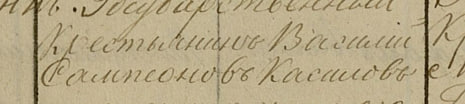 Государственный
Крестьянинъ Василій
Сампсоновъ Касиловъ